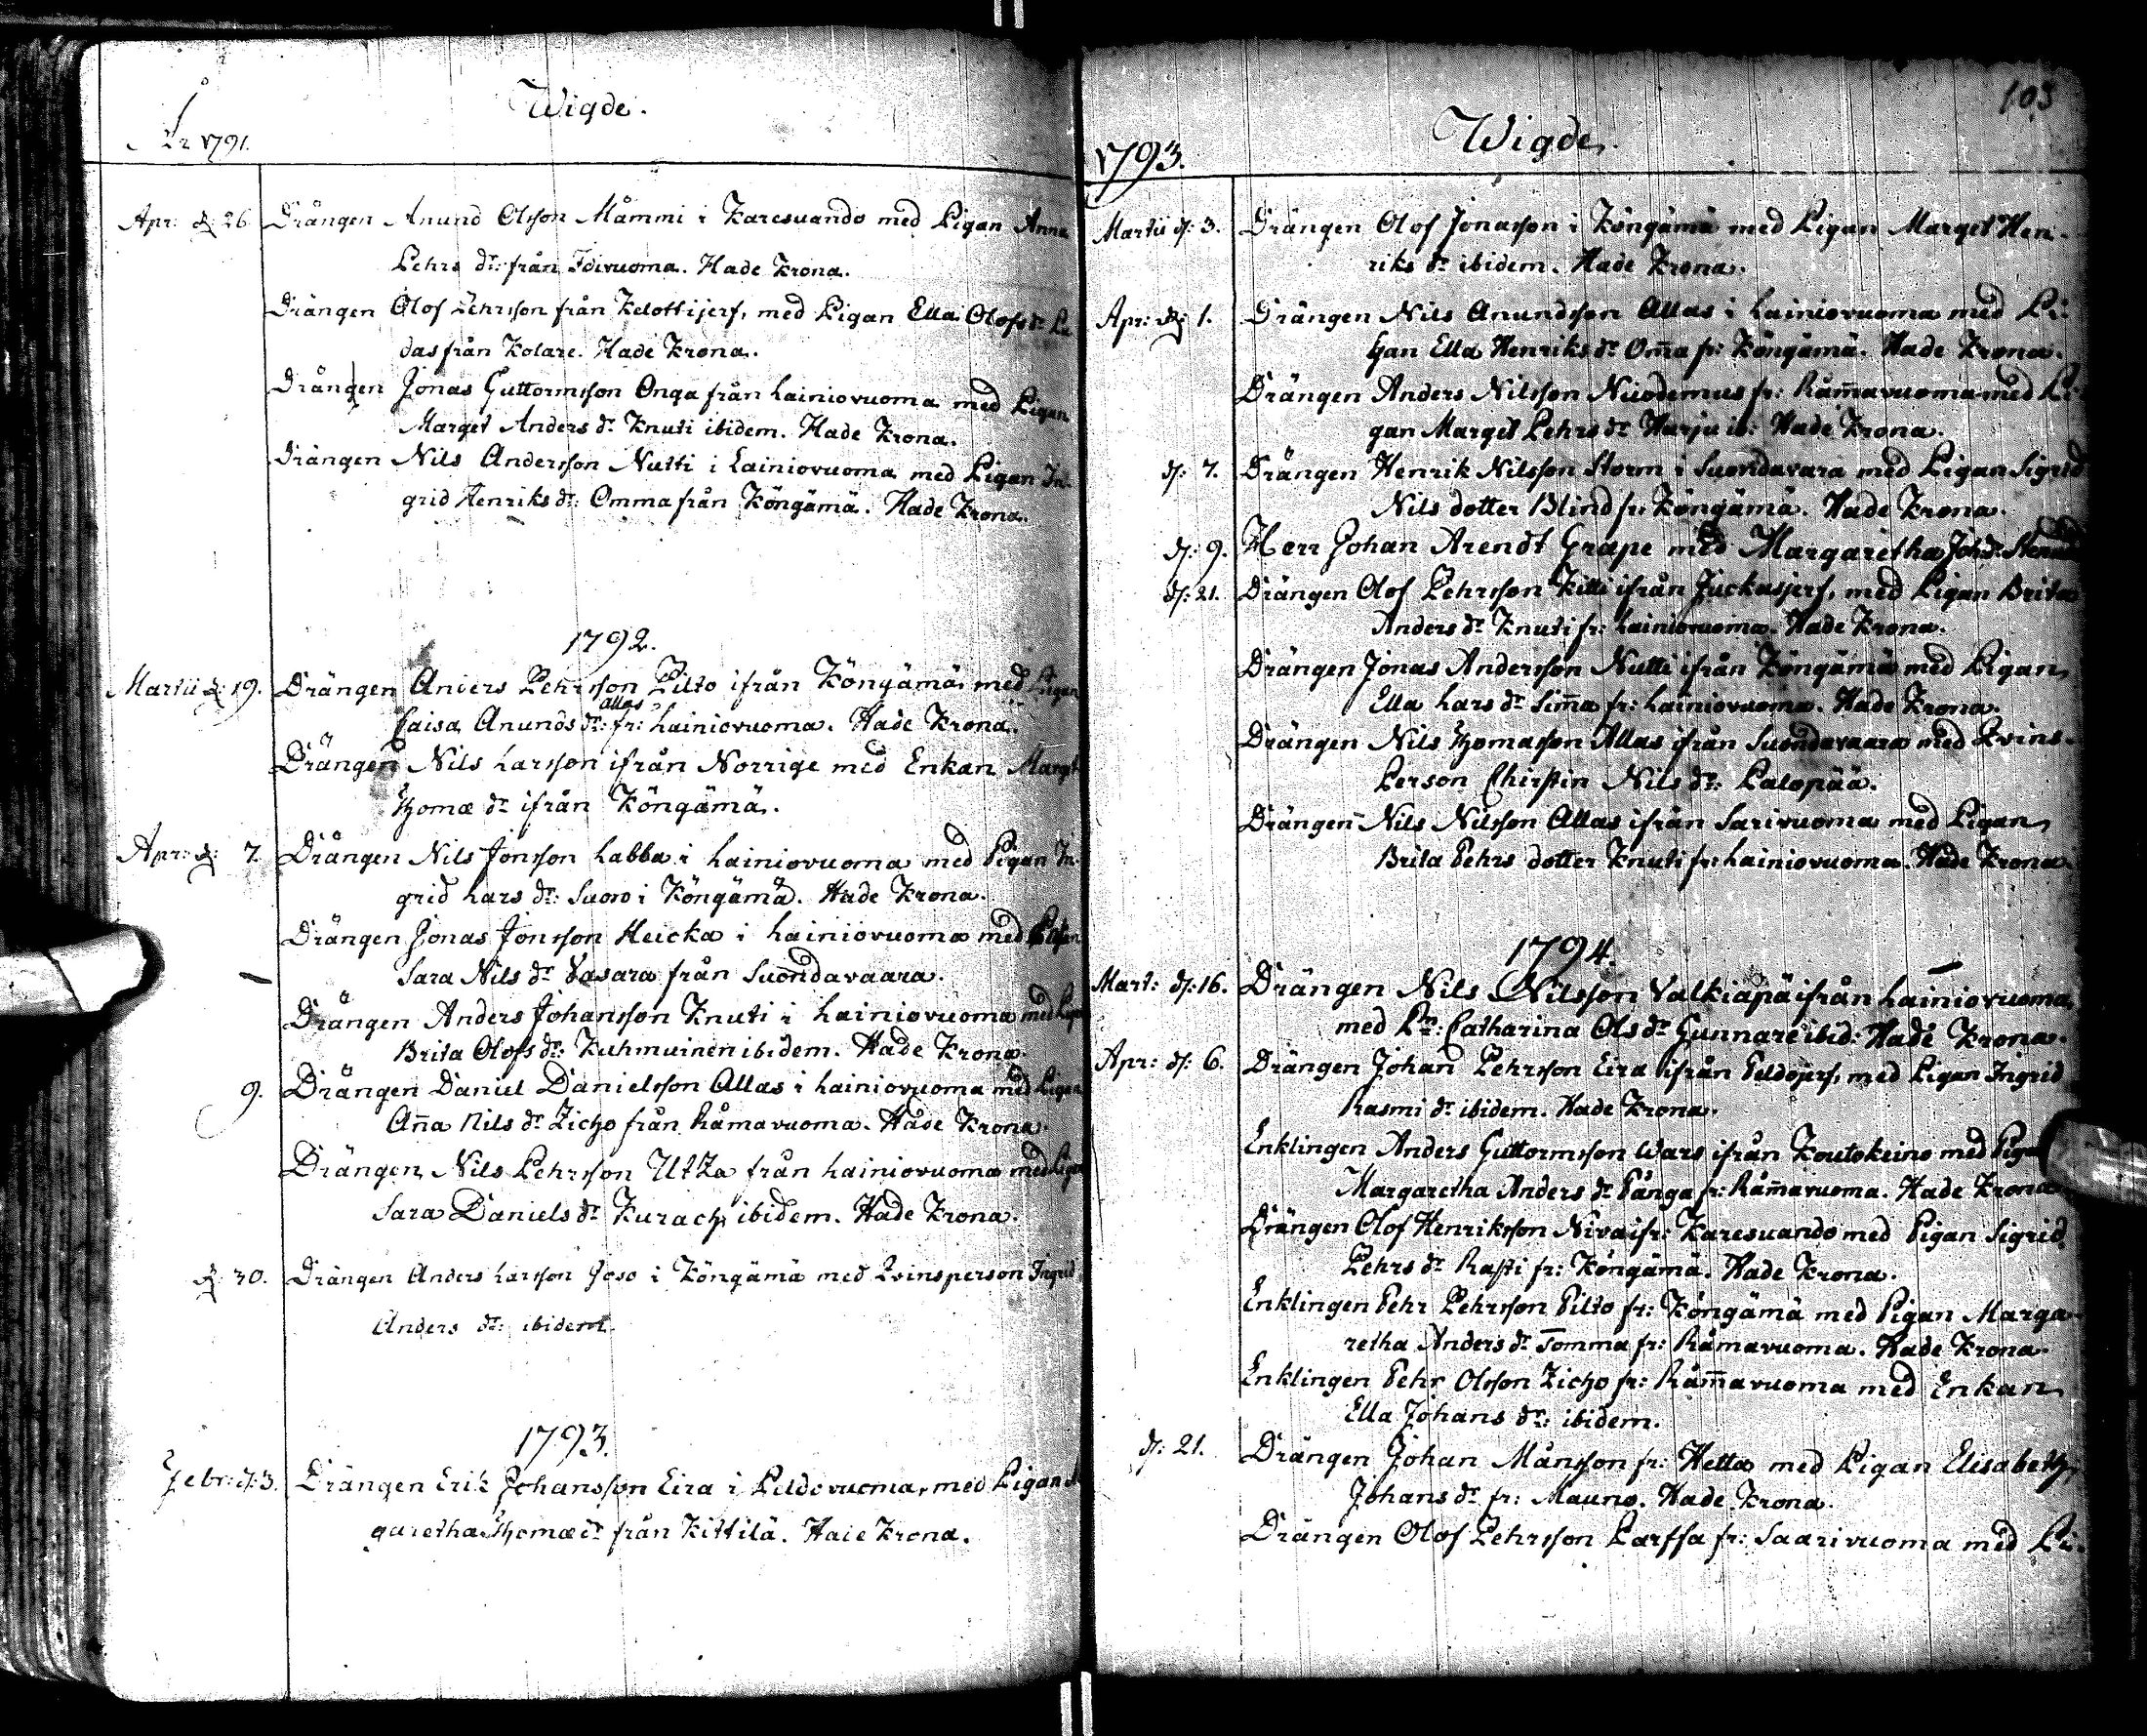 Wigde.
År 1791.
Apr: d: 26 Drängen Anund Olsson Mämmi i Karesuando med Pigan Anna
Pehrs dr: från Idivuoma. Hade Krona.
Drängen Olof Pehrsson från Kelottijerf, med Pigan Ella Olofs dr
das från Kolare. Hade Krona.
Drängen Jonas Guttormsson Onga från Lainiovuoma med Pigan
Marget Anders dr Knuti ibidem. Hade Krona.
Drängen Nils Andersson Nutti i Lainiovuoma med Pigan In-
grid Henriks dr: Omma från Köngämä. Hade Krona.
1792.
Martii d: 19. Drängen Anders Pehrsson Pilto ifrån Köngämä med Pigan
Allas
Caisa Anunds dr: fr: Lainiovuoma. Hade Krona.
Drängen Nils Larsson ifrån Norrige med Enkan Margt
Thomæ dr ifrån Köngämä.
Apr: d: 7. Drängen Nils Jonsson Labba i Lainiovuoma med Pigan In-
grid Lars dr: Suoro i Köngämä. Hade Krona.
Drängen Jonas Jonsson Heicka i Lainiovuoma med
Sara Nils dr Vasara från Suondavaara.
Drängen Anders Johansson Knuti i Lainiovuoma med Pigan
Brita Olofs dr: Kuhmuinen ibidem. Hade Krona.
9. Drängen Daniel Danielsson Allas i Lainiovuoma med Pigan
Aña Nils dr Zicho från Råmavuoma. Hade Krona.
Drängen Nils Pehrsson Utza från Lainiovuoma med Pigan
Sara Daniels dr Kurach ibidem. Hade Krona.
d: 30. Drängen Anders Larsson Joso i Köngämä med Qvinsperson Ingrid
Anders dr: ibidem.
1793.
Febr: d: 3. Drängen Erik Johansson Eira i Peldovuoma, med Pigan
garetha Thomæ dr från Kittilä. Hade Krona.
103
Wigde.
1793.
Martii d: 3. Drängen Olof Jonasson i Köngämä med Pigan Marget Hen-
riks dr ibidem. Hade Krona.
Apr: d: 1. Drängen Nils Anundsson Allas i Lainiovuoma med Pi-
gan Ella Henriks dr Om̄a fr: Köngämä. Hade Krona.
Drängen Anders Nilsson Nicodemus fr: Råm̄avuoma med Pi-
gan Marget Pehrs dr Harju ib: Hade Krona.
d: 7. Drängen Henrik Nilsson Storm i Suondavara med Pigan Sigrid
Nils dotter Blind fr: Köngämä. Hade Krona.
d: 9. Herr Johan Arendt Grape med Margaretha Joh. dr
d: 21. Drängen Olof Pehrsson Kitti ifrån Juckasjerf, med Pigan Brita
Anders dr Knuti fr: Lainiovuoma. Hade Krona.
Drängen Jonas Andersson Nutti ifrån Köngämä med Pigan
Ella Lars dr Sim̄a fr: Lainiovuoma. Hade Krona.
Drängen Nils Thomasson Allas ifrån Suondavaara med Qvins-
Person Cherstin Nils dr: Palopää.
Drängen Nils Nilsson Allas ifrån Sarivuoma med Pigan
Brita Pehrs dotter Knuti fr: Lainiovuoma. Hade Krona
1794.
Mart: d: 16. Drängen Nils Nilsson Valkiapä ifrån Lainiovuoma
med Pn: Catharina Ols dr Gunnare ibid: Hade Krona.
Apr: d: 6. Drängen Johan Pehrsson Eira ifrån Peldojerf, med Pigan Ingrid
Rasmi dr ibidem. Hade Krona.
Enklingen Anders Guttormsson Wars ifrån Koutokeino med Pigan
Margaretha Anders dr Pånga fr: Råm̄avuoma. Hade Krona
Drängen Olof Henriksson Niva ifr: Karesuando med Pigan Sigrid
Pehrs dr Rasti fr: Köngämä. Hade Krona.
Enklingen Pehr Pehrsson Pilto fr: Köngämä med Pigan Marga-
retha Anders dr Tomma fr: Råmavuoma. Hade Krona.
Enklingen Pehr Olsson Zicho fr: Råm̄avuoma med Enkan
Ella Johans dr: ibidem.
d: 21. Drängen Johan Månsson fr: Hetta med Pigan Elisabeth
Johans dr fr: Mauno. Hade Krona.
Drängen Olof Pehrsson Parffa fr: Saarivuoma med Pi-